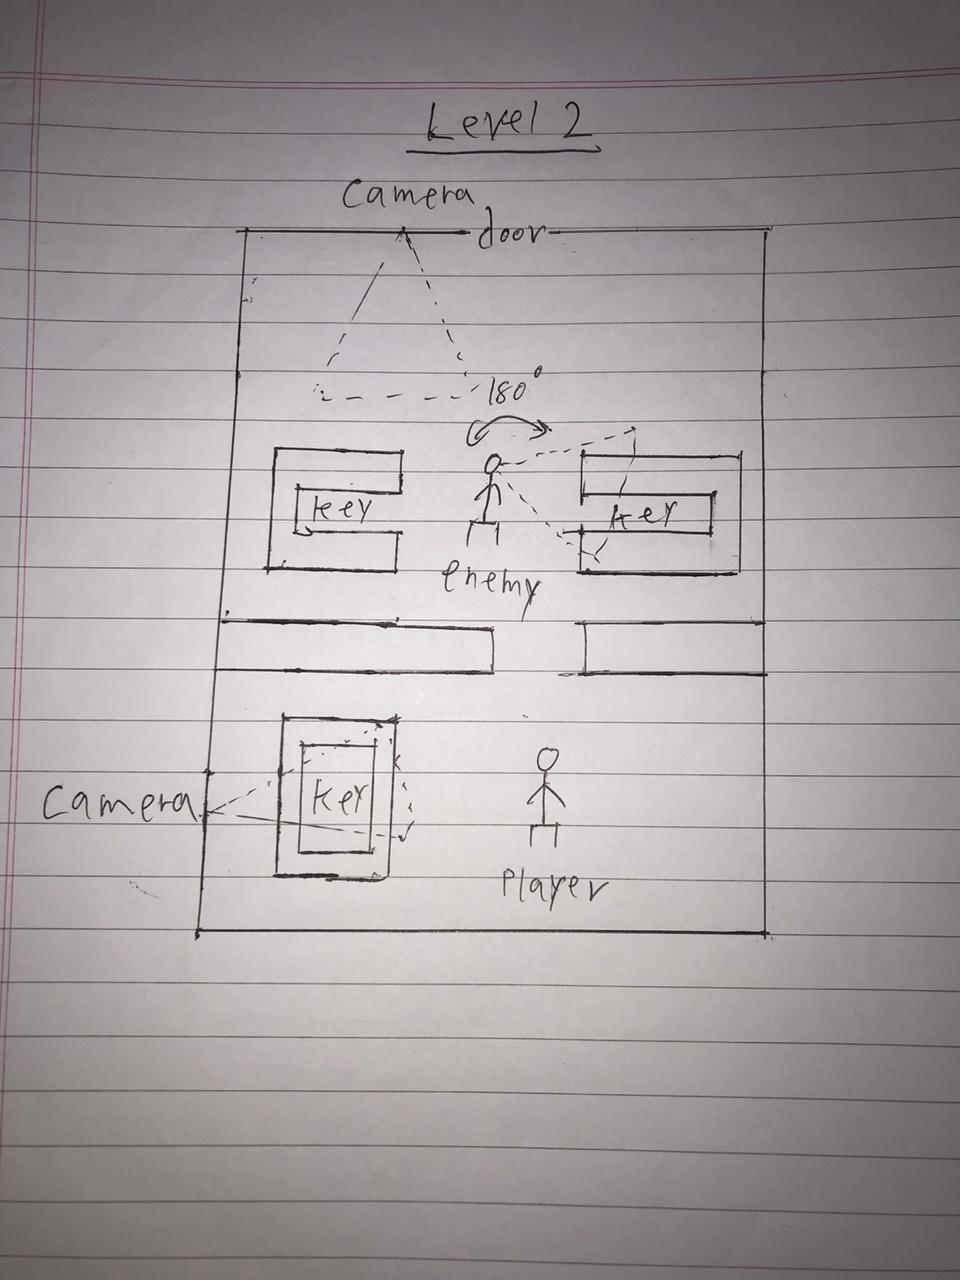 Level 2
Camera
door
180°
key
key
enemy
Camera
key
Player